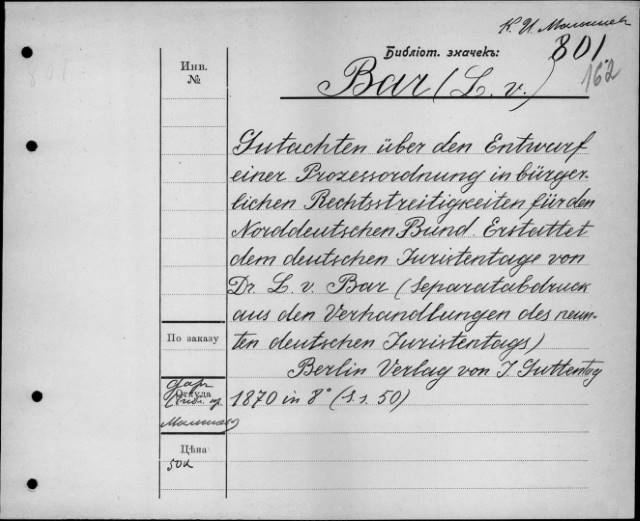 К. И. Малышев
Библіот. значекъ:
801
162
Инв.
№
Bar (L. v.)
Gutachten über den Entwurf
einer Prozessordnung in bürger-
lichen Rechtsstreitigkeiten für den
Norddeutschen Bund. Erstattet
dem deutschen Juristentage von
Dr. L. v. Bar (Separatabdruck
aus den Verhandlungen des neun-
ten deutschen Juristentags)
Berlin Verlag von J. Guttentag
1870 in 8° (S. s. 50)
По заказу
Дар
Откуда
Малышева
Цѣна
50к